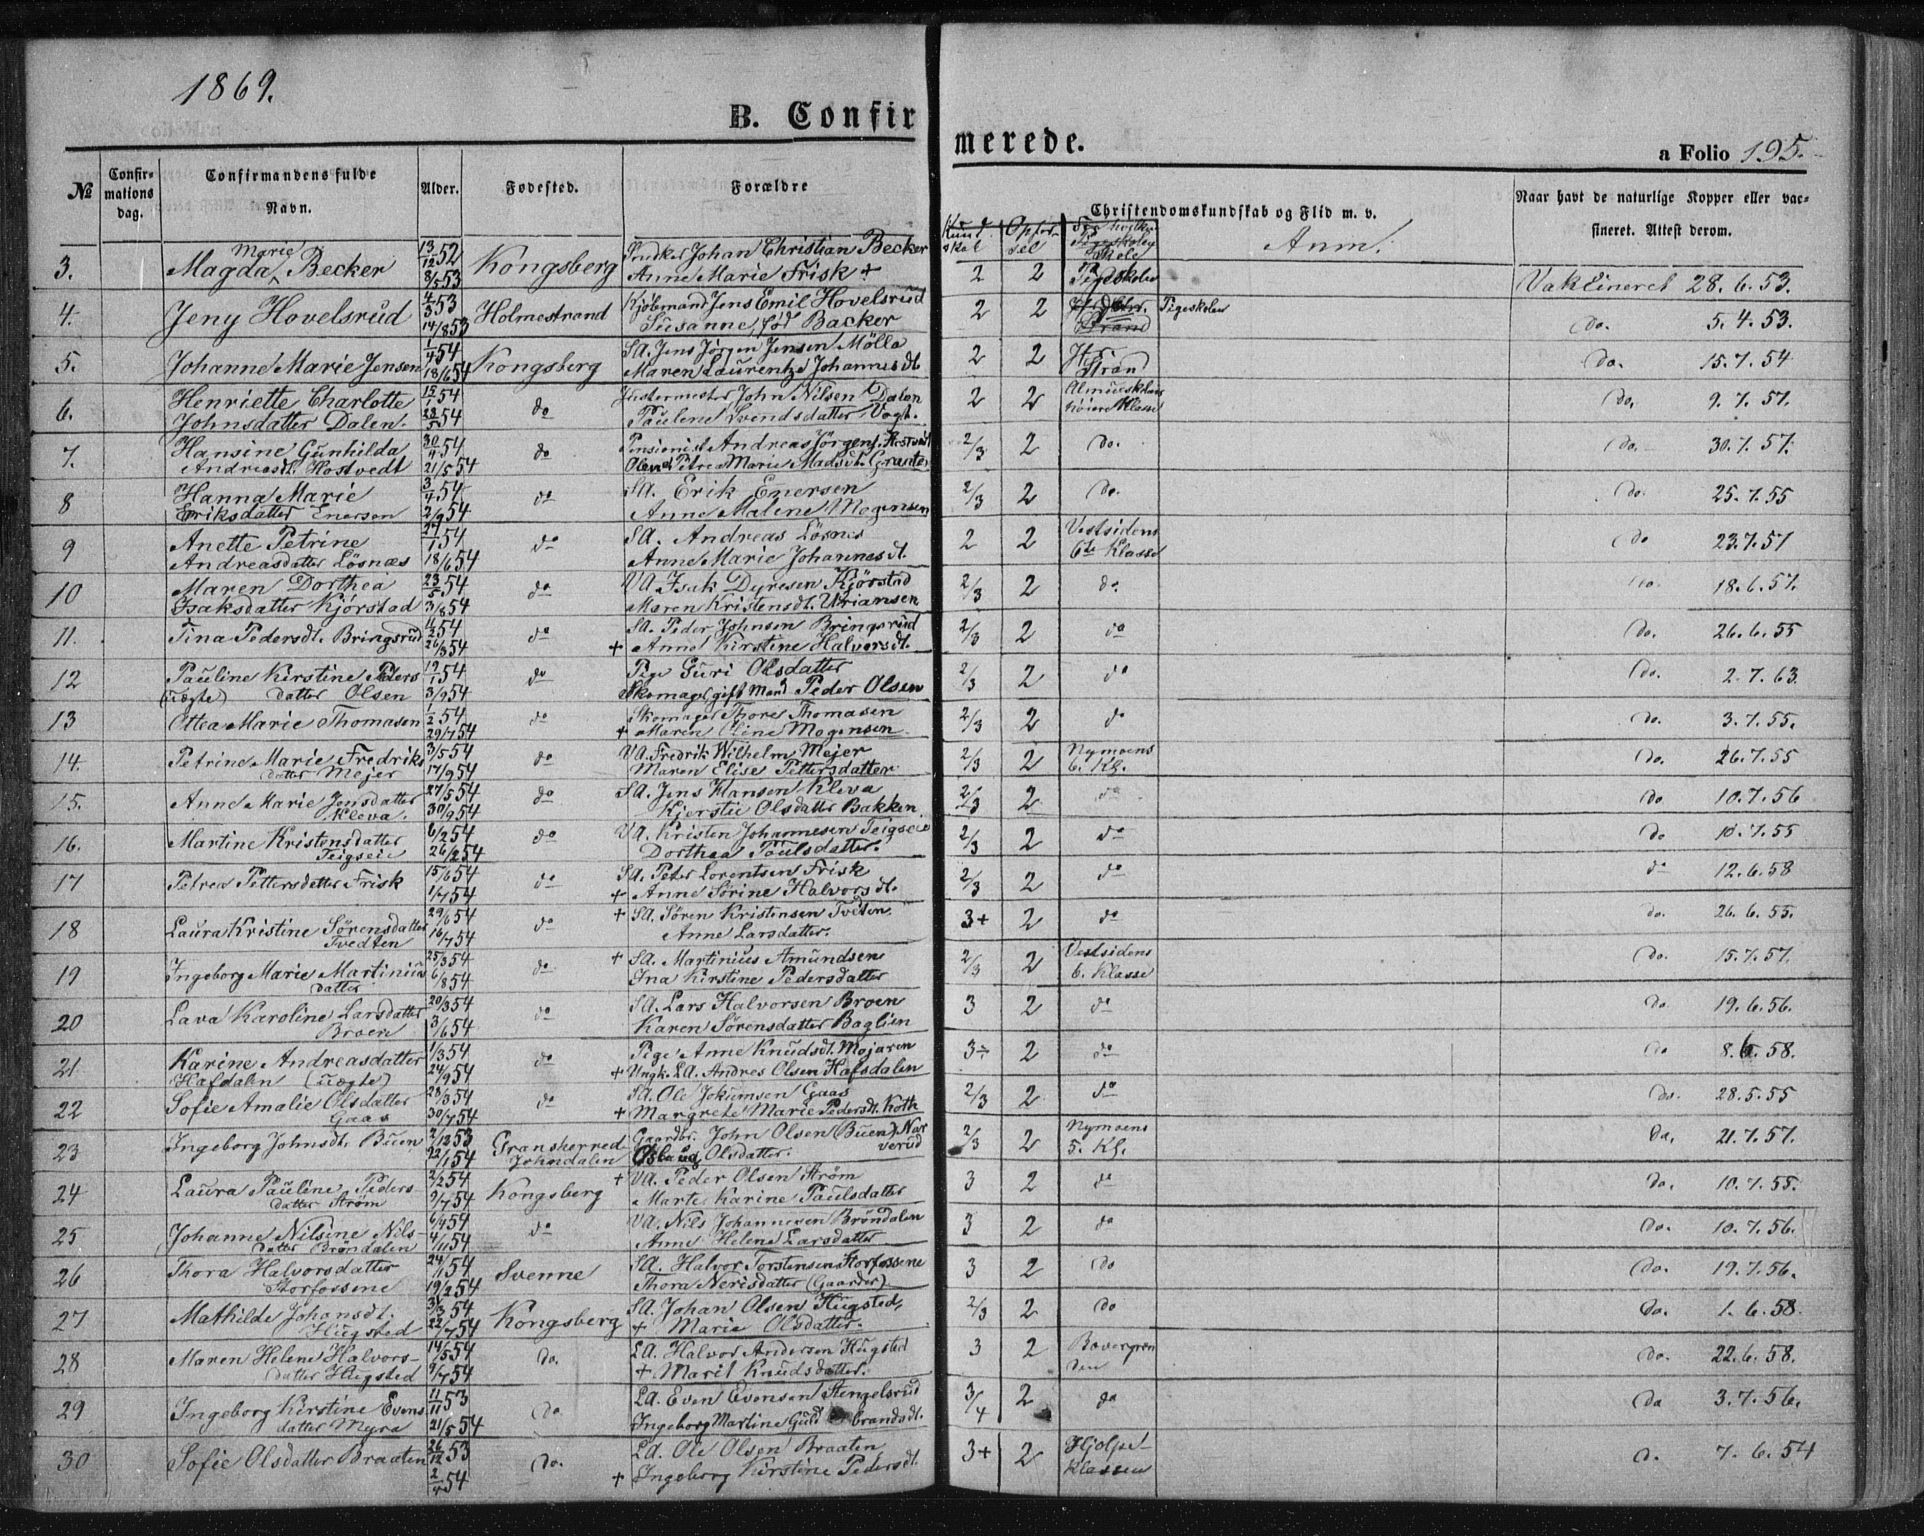 1869.
B. Confirmerede.
a Folio 195.
№ Confirmations dag. Confirmandens fulde Navn. Alder. Fødested. Forældre Christendomskundskab og Flid m. v. Naar havt de naturlige Kopper eller vaccineret. Attest derom.
Kundskab Opførsel Skole Anm.
3. Magda Marie Becker 13/12 52 8/5 53 Kongsberg Johan Christian Becker Anne Marie Frisk + 2 2 Pigeskolen Vakcineret 28.6.53.
4. Jeny Hovelsrud 4/3 53 14/8 53 Holmestrand Kjøbmand Jens Emil Hovelsrud Susanne, fød Backer 2 2 Pigeskolen do. 5.4.53.
5. Johanne Marie Jensen 1/4 54 18/6 54 Kongsberg SA. Jens Jørgen Jensen Mølla Maren Laurentze Johannesdt. 2 2 Hr. Strand do. 15.7.54
6. Henriette Charlotte Johnsdatter Dalen. 15/1 54 28/5 54 do John Nilsen Dalen Pauline Svendsdatter Vogt. 2 2 Almueskolens høiere Klasse do. 9.7.57.
7. Hansine Gunhilda Andreasdt. Hostvedt 30/4 54 21/5 54 do Pensionist Andreas Jørgens. Hostvedt Olene Petrea Marie Madsdt. 2/3 2 do. do. 30.7.57.
8 Hanna Marie Eriksdatter Enersen 3/4 54 2/9 54 do SA. Erik Enersen Anne Malene Mogensen 2/3 2 do. do. 25.7.55
9 Anette Petrine Andreasdatter Løsnæs 54 18/6 54 do SA. Andreas Løsnes Anne Marie Johannesdt. 2 2 Vestsidens 6te Klasse do 23.7.57
10 Maren Dorthea Isaksdatter Kjørstad 23/5 54 3/8 54 do VA. Isak Dyresen Kjørstad Maren Kristensdt. Uriansen 2/3 2 do. do. 18.6.57.
11. Tina Pedersdt. Bringsrud 11/2 54 26/3 54 do SA. Peder Johnsen Bringsrud + Anne Kirstine Halvorsdt. 2/3 2 do do. 26.6.55
12 Pauline Kirstine Peders (uægte) datter Olsen 19/1 54 3/9 54 do Pige Guri Olsdatter Skomager (gift Mand) Peder Olsen 2/3 2 do do. 2.7.63.
13 Othea Marie Thomasen 1/2 54 29/7 54 do Skomager Thore Thomasen + Maren Oline Mogensen 2/3 2 do do. 3.7.55.
14. Petrine Marie Fredriks datter Mejer 3/5 54 17/9 54 do VA. Fredrik Wilhelm Mejer Maren Elise Pettersdatter 2/3 2 Nymoens 6. Kl. do. 26.7.55
15. Anne Marie Jensdatter Kleva. 27/5 54 30/9 54 do SA. Jens Hansen Kleva Kjerstie Olsdatter Bakken 2/3 2 do do 10.7.56
16. Martine Kristensdatter Teigseie 6/2 54 26/2 54 do VA. Kristen Johannesen Teigseie Dorthea Poulsdatter. 2/3 2 do do 10.7.55
17 Petrea Pettersdatter Frisk 15/6 54 1/7 54 do SA. Peter Lorentsen Frisk + Anne Sørine Halvorsdt. 2/3 2 do do 12.6.58
18 Laura Kristine Sørensdatter Tvedten 29/6 54 16/7 54 do + SA. Søren Kristensen Tvedten Anne Larsdatter. 3+ 2 do do. 26.6.55.
19 Ingeborg Marie Martinius datter 25/3 54 6/8 54 do + SA. Martinius Amundsen Ina Kirstine Pedersdatter 2/3 2 Vestsidens 6. Klasse do. 15.7.57.
20 Lava Karoline Larsdatter Broen 20/3 54 3/6 54 do SA. Lars Halvorsen Broen Karen Sørensdatter Baglien 3 2 do do 19.6.56.
21 Karine Andreasdatter Hafdalen (uægte) 1/3 54 24/9 54 do Pige Anne Knudsdt. Mojaren + Ungk. LA. Andres Olsen Hafsdalen 3÷ 2 do do 8.6.58.
22 Sofie Amalie Olsdatter Gaas 28/3 54 30/7 54 do SA. Ole Jokumsen Gaas + Margrete Marie Pedersdt. Koth 2/3 2 do do. 28.5.55
23 Ingeborg Johnsdt. Buen 2/12 53 22/1 54 Gransherred Johndalen Gaardbr. John Olsen (Buen) Narverud Olsdatter. 2/3 2 Nymoens 5. Kl. Do. 21.7.57.
24 Laura Pauline Peders- datter Strøm 2/2 54 9/7 54 Kongsberg + VA. Peder Olsen Strøm Marte Karine Paulsdatter 3 2 do do. 10.7.55.
25 Johanne Nilsine Nils- datter Brøndalen 6/9 54 4/11 54 do VA. Nils Johannesen Brøndalen Anne Helene Larsdatter 3 2 do Do. 10.7.56.
26 Thora Halvorsdatter Storfossene 24/1 54 19/2 54 Svenne SA. Halvor Torstensen Storfossene Thora Nerisdatter (Gaarder) 3 2 do Do. 19.7.56.
27 Mathilde Johansdt. Hugsted 31/3 54 22/7 54 Kongsberg SA. Johan Olsen Hugsted, + Marie Olsdatter. 2/3 2 do Do. 1.6.58.
28 Maren Helene Halvors- datter Hugsted 14/5 54 9/7 54 do. LA. Halvor Andersen Hugsted + Marit Knudsdatter. 3 2 Bevergrenden do. 22.6.58.
29 Ingeborg Kirstine Evens datter Myra 11/11 53 21/5 54 do LA. Even Evensen Stengelsrud Ingeborg Martine Guldbrandsdt. 3/4 2 do Da 3.7.56.
30 Sofie Olsdatter Braaten 26/12 53 2/4 54 do. LA. Ole Olsen Braaten + Ingeborg Kirstine Pedersdt. 3+ 2 Hjælpe- klassen d. 7.6.54